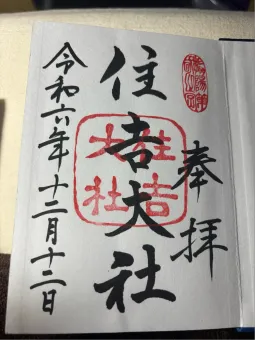 奉拝
住吉大社
住吉
大社
令和六年十二月十二日